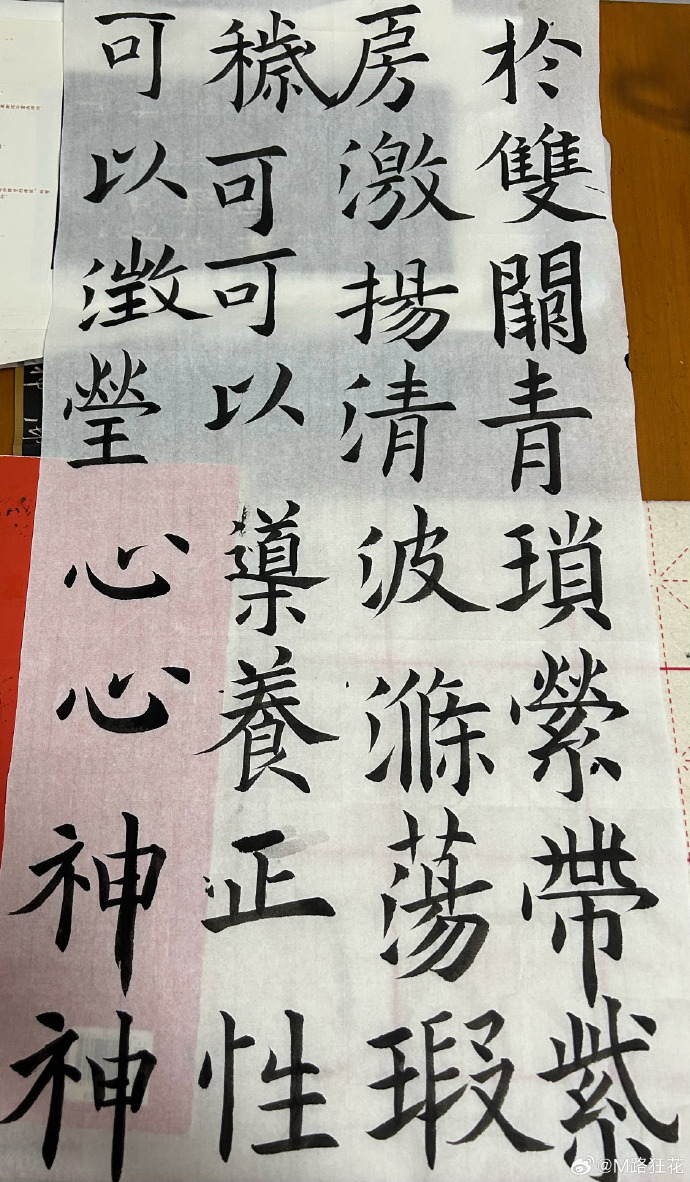 於雙闕青瑣縈帶紫
房激揚清波滌蕩瑕
穢可可以導養正性
可以澂瑩心心神神
@M路狂花